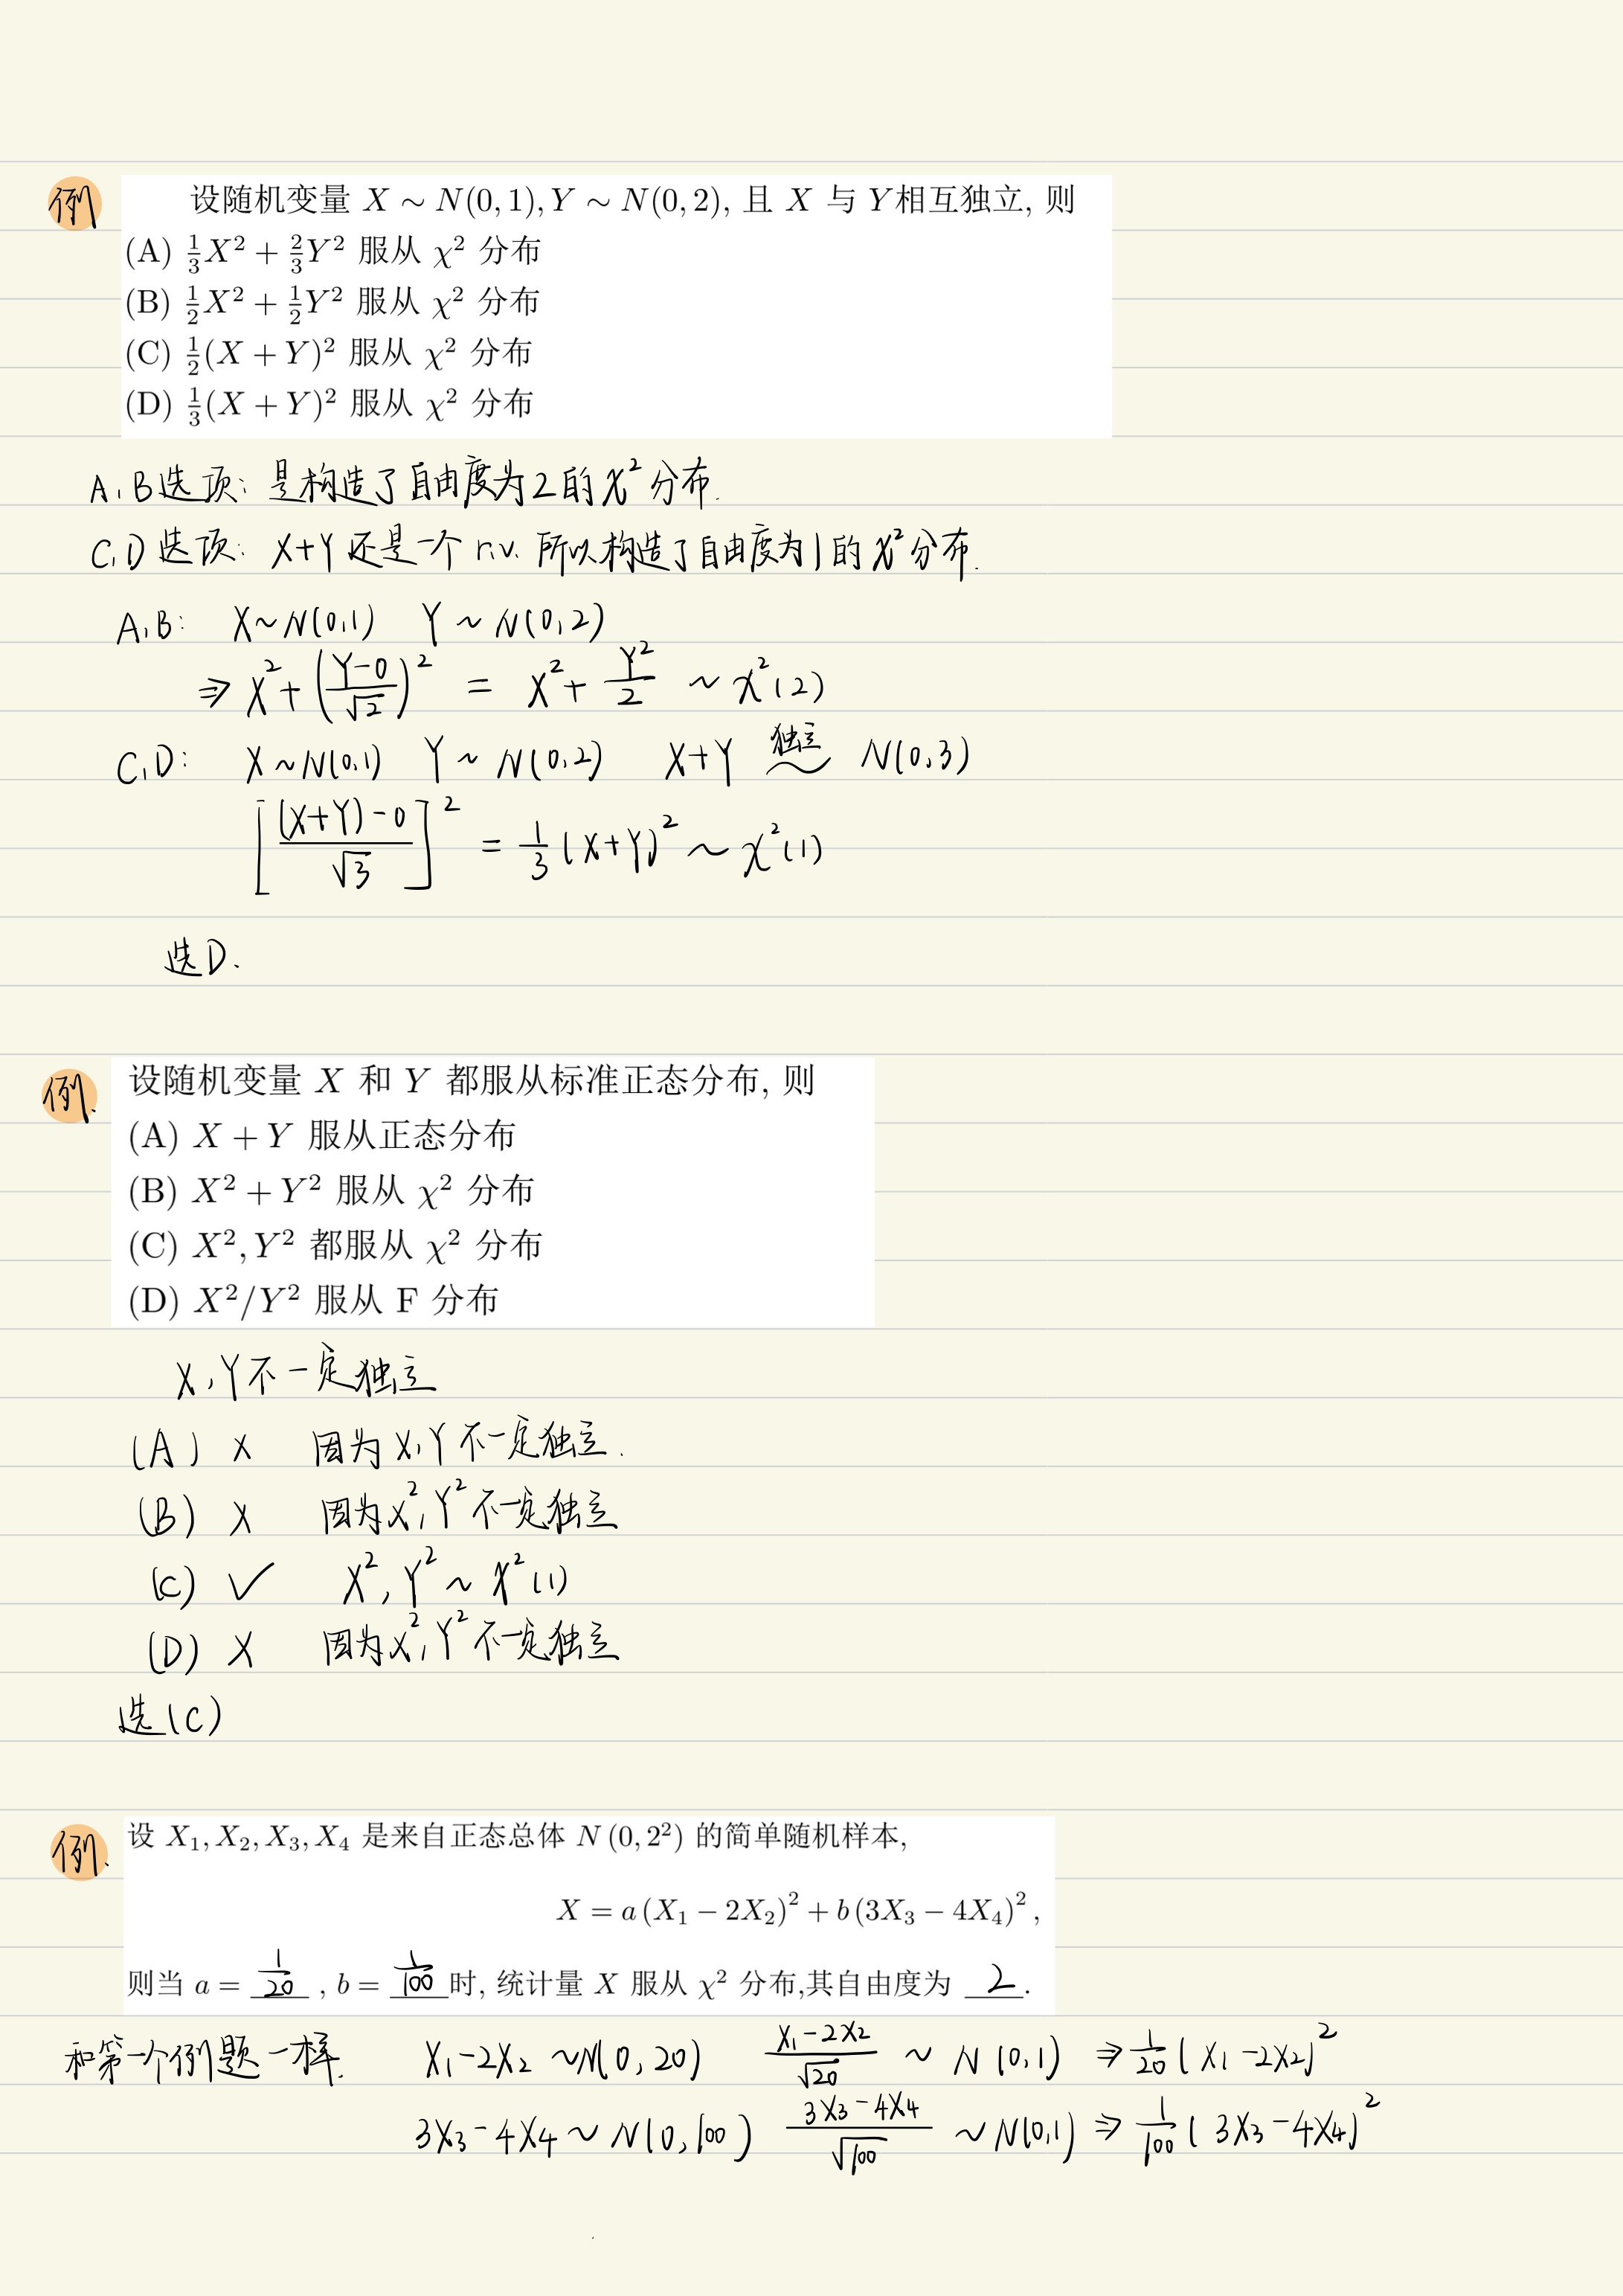 例 设随机变量 X ∼ N(0, 1), Y ∼ N(0, 2), 且 X 与 Y相互独立, 则
(A) 1/3X² + 2/3Y² 服从 χ² 分布
(B) 1/2X² + 1/2Y² 服从 χ² 分布
(C) 1/2(X + Y)² 服从 χ² 分布
(D) 1/3(X + Y)² 服从 χ² 分布
A, B选项: 是构造了自由度为2的χ²分布.
C, D选项: X+Y还是一个 r.v. 所以构造了自由度为1的χ²分布.
A, B: X~N(0,1) Y~N(0,2)
⇒ X² + ((Y-0)/√2)² = X² + Y²/2 ~ χ²(2)
C, D: X~N(0,1) Y~N(0,2) X+Y 独立 ~ N(0,3)
[((X+Y)-0)/√3]² = 1/3(X+Y)² ~ χ²(1)
选D.
例. 设随机变量 X 和 Y 都服从标准正态分布, 则
(A) X + Y 服从正态分布
(B) X² + Y² 服从 χ² 分布
(C) X², Y² 都服从 χ² 分布
(D) X²/Y² 服从 F 分布
X, Y不一定独立
(A) × 因为X, Y不一定独立.
(B) × 因为X², Y²不一定独立
(C) ✓ X², Y² ~ χ²(1)
(D) × 因为X², Y²不一定独立
选(C)
例. 设 X₁, X₂, X₃, X₄ 是来自正态总体 N (0, 2²) 的简单随机样本,
X = a (X₁ − 2X₂)² + b (3X₃ − 4X₄)²,
则当 a = 1/20 , b = 1/100 时, 统计量 X 服从 χ² 分布,其自由度为 2.
和第一个例题一样. X₁-2X₂ ~N(0, 20) (X₁-2X₂)/√20 ~ N(0,1) ⇒ 1/20(X₁-2X₂)²
3X₃-4X₄ ~ N(0, 100) (3X₃-4X₄)/√100 ~ N(0,1) ⇒ 1/100(3X₃-4X₄)²